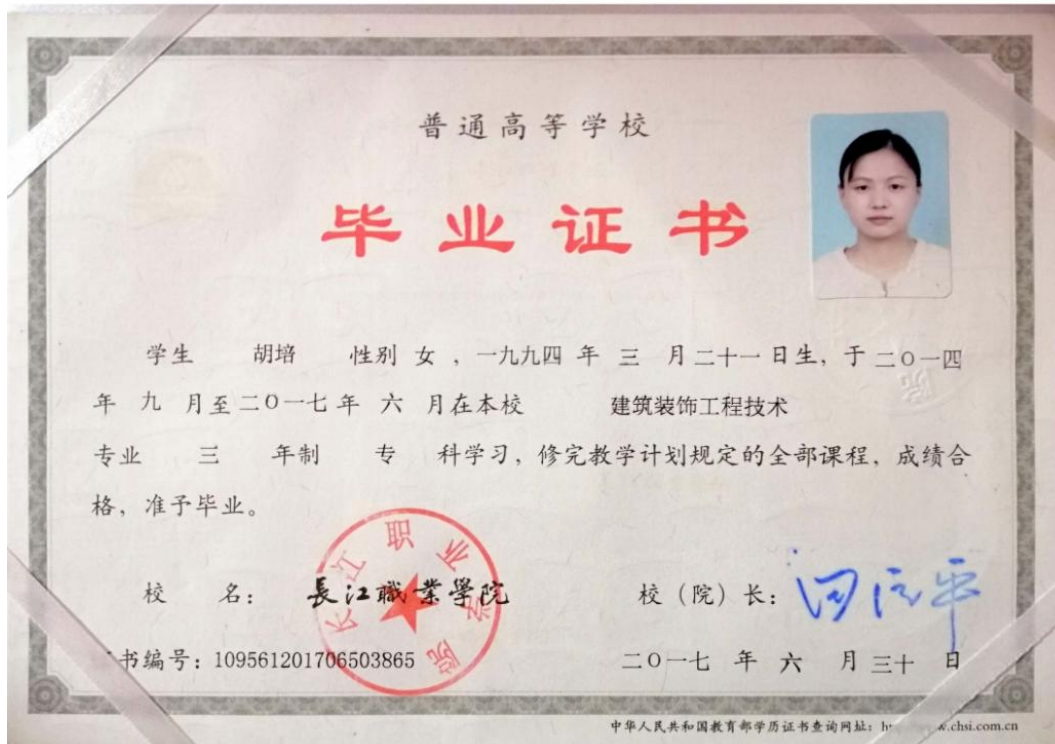 普通高等学校
毕业证书
学生 胡培 性别 女 ，一九九四 年 三 月二十一日生，于二〇一四
年 九 月至二〇一七年 六 月在本校 建筑装饰工程技术
专业 三 年制 专 科学习，修完教学计划规定的全部课程，成绩合
格，准予毕业。
长江职业学院
校 名： 長江職業學院 校（院）长：
书编号：109561201706503865 二〇一七 年 六 月三十 日
中华人民共和国教育部学历证书查询网址：h w.chsi.com.cn